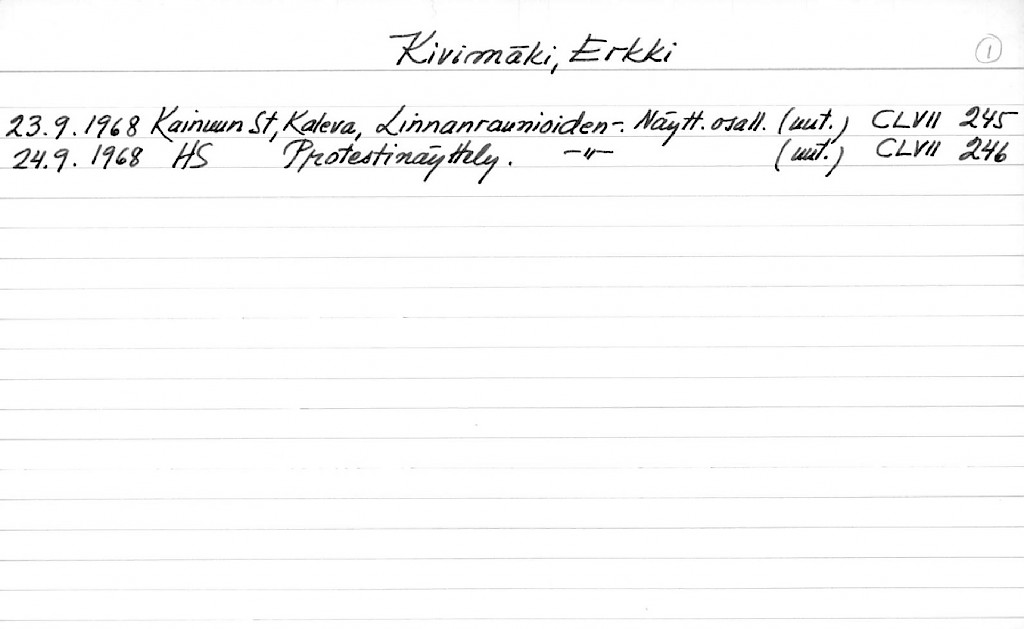 Kivimäki, Erkki ①
23.9.1968 Kainuun St, Kaleva, Linnanraunioiden-. Näytt. osall. (uut.) CLVII 245
24.9.1968 HS Protestinäyttely. -"- (uut.) CLVII 246